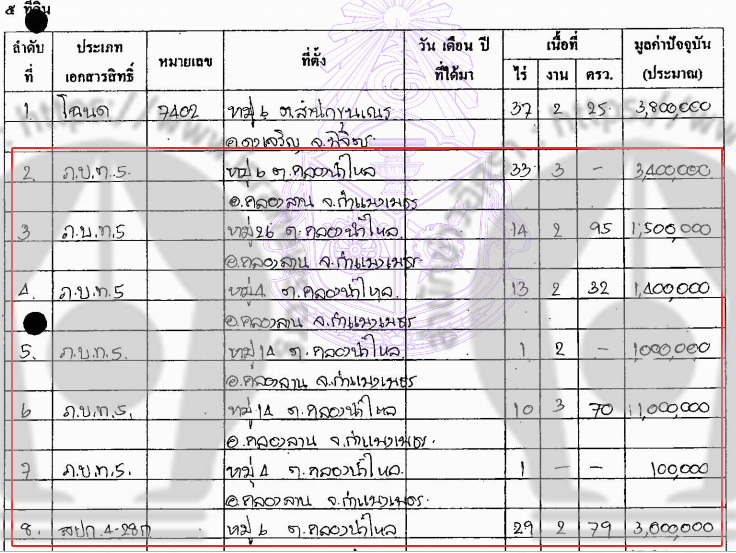 ๕ ที่ดิน
ลำดับที่ ประเภทเอกสารสิทธิ์ หมายเลข ที่ตั้ง วัน เดือน ปี ที่ได้มา เนื้อที่ ไร่ งาน ตรว. มูลค่าปัจจุบัน (ประมาณ)
1 โฉนด 7402 หมู่ 6 ต.สำนักขุนเณร 37 2 25 3,800,000
อ.ดงเจริญ จ.พิจิตร
2 ภ.บ.ท.5. หมู่ 6 ต.คลองน้ำไหล 33 3 - 3,400,000
อ.คลองลาน จ.กำแพงเพชร
3 ภ.บ.ท.5 หมู่ 26 ต.คลองน้ำไหล 14 2 95 1,500,000
อ.คลองลาน จ.กำแพงเพชร
4. ภ.บ.ท.5 หมู่ 4 ต.คลองน้ำไหล 13 2 32 1,400,000
อ.คลองลาน จ.กำแพงเพชร
5. ภ.บ.ท.5. หมู่ 14 ต.คลองน้ำไหล 1 2 - 1,000,000
อ.คลองลาน จ.กำแพงเพชร
6 ภ.บ.ท.5. หมู่ 14 ต.คลองน้ำไหล 10 3 70 11,000,000
อ.คลองลาน จ.กำแพงเพชร.
7 ภ.บ.ท.5. หมู่ 4 ต.คลองน้ำไหล 1 - - 100,000
อ.คลองลาน จ.กำแพงเพชร.
8. สปก.4-28ก หมู่ 6 ต.คลองน้ำไหล 29 2 79 3,000,000